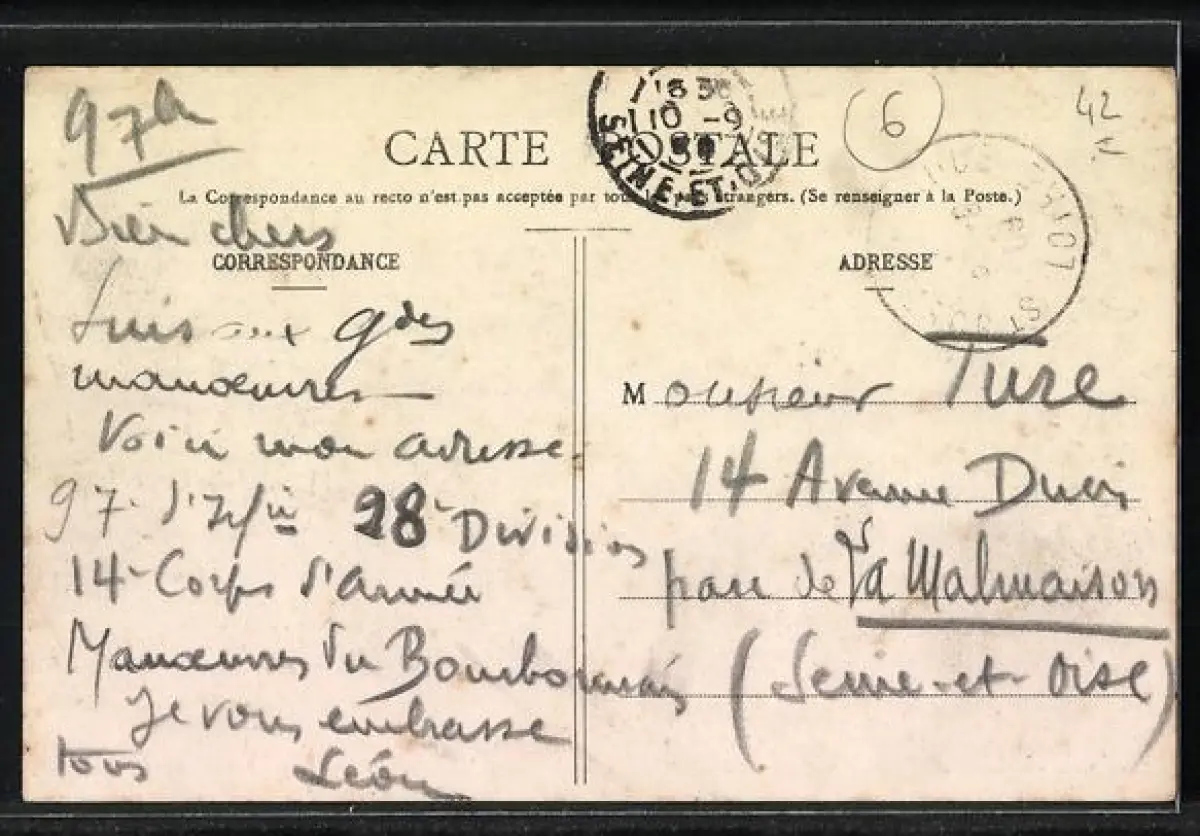 97e
CARTE POSTALE
La Correspondance au recto n'est pas acceptée par tous pays étrangers. (Se renseigner à la Poste.)
10 -9
SEINE-ET-O
6
42
Bien chers
CORRESPONDANCE
Suis aux gdes
manœuvres
Voici mon adresse
97e d'Infie 28e Division
14e Corps d'Armée
Manœuvres du Bourbonnais
Je vous embrasse
tous Léon
ADRESSE
Monsieur Ture
14 Avenue Ducis
parc de la Malmaison
(Seine-et-Oise)